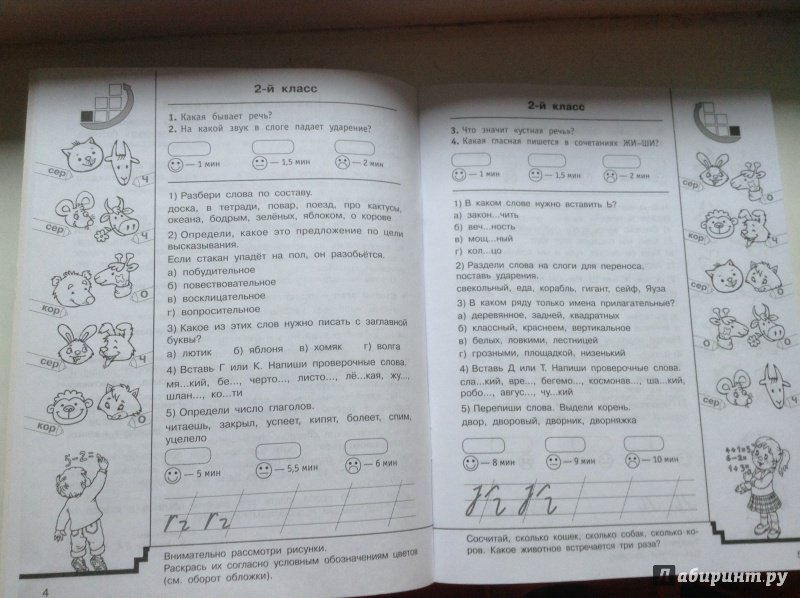 2-й класс
1. Какая бывает речь?
2. На какой звук в слоге падает ударение?
— 1 мин — 1,5 мин — 2 мин
1) Разбери слова по составу.
доска, в тетради, повар, поезд, про кактусы,
океана, бодрым, зелёных, яблоком, о корове
2) Определи, какое это предложение по цели
высказывания.
Если стакан упадёт на пол, он разобьётся.
а) побудительное
б) повествовательное
в) восклицательное
г) вопросительное
3) Какое из этих слов нужно писать с заглавной
буквы?
а) лютик б) яблоня в) хомяк г) волга
4) Вставь Г или К. Напиши проверочные слова.
мя...кий, бе..., черто..., листо..., лё...кая, жу...,
шлан..., ко...ти
5) Определи число глаголов.
читаешь, закрыл, успеет, кипят, болеет, спим,
уцелело
— 5 мин — 5,5 мин — 6 мин
Внимательно рассмотри рисунки.
Раскрась их согласно условным обозначениям цветов
(см. оборот обложки).
4
сер
ч
сер
ч
кор
о
сер
ч
кор
о
5-2=
2-й класс
3. Что значит «устная речь»?
4. Какая гласная пишется в сочетаниях ЖИ–ШИ?
— 1 мин — 1,5 мин — 2 мин
1) В каком слове нужно вставить Ь?
а) закон...чить
б) веч...ность
в) мощ...ный
г) кол...цо
2) Раздели слова на слоги для переноса,
поставь ударения.
свекольный, еда, корабль, гигант, сейф, Яуза
3) В каком ряду только имена прилагательные?
а) деревянное, задней, квадратных
б) классный, краснеем, вертикальное
в) белых, ловкими, лестницей
г) грозными, площадкой, низенький
4) Вставь Д или Т. Напиши проверочные слова.
сла...кий, вре..., бегемо..., космонав..., ша...кий,
робо..., авгус..., чу...кий
5) Перепиши слова. Выдели корень.
двор, дворовый, дворник, дворняжка
— 8 мин — 9 мин — 10 мин
Сосчитай, сколько кошек, сколько собак, сколько ко-
ров. Какое животное встречается три раза?
сер
о
кор
ч
сер
ч
о
о
сер
ч
Лабиринт.ру